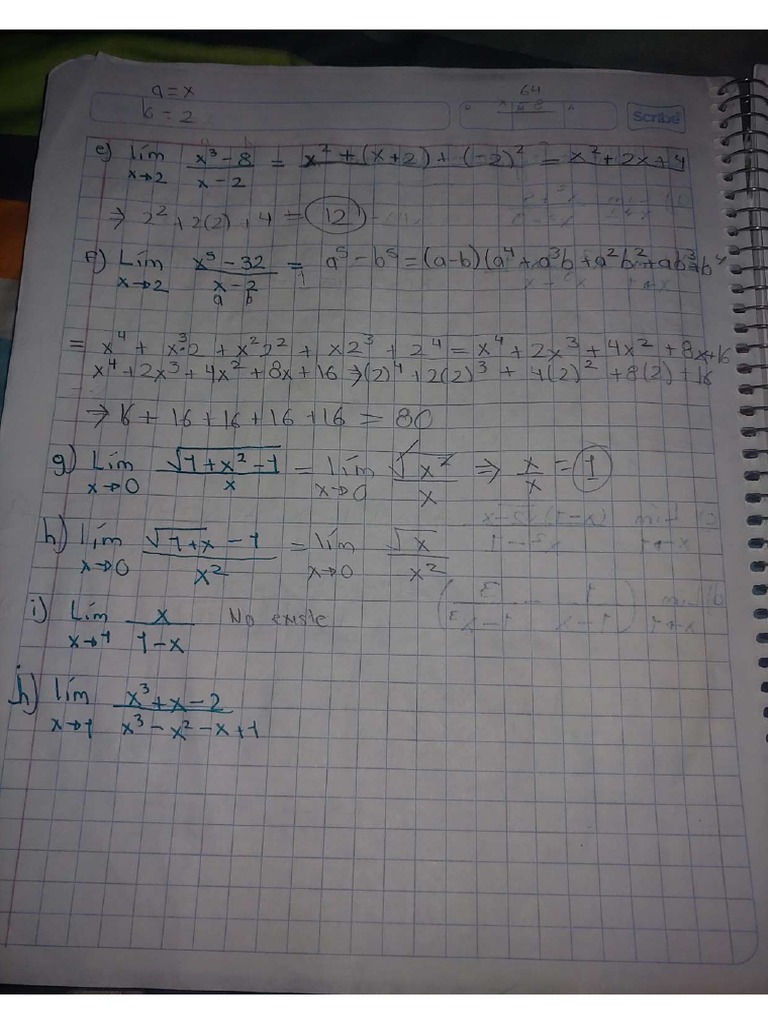 a=x
64
b=2
Scribe
e) lím x→2 x³-8 / x-2 = x² + (x+2) + (-2)² = x²+2x+4
⇒ 2² + 2(2) + 4 = 12
f) Lím x→2 x⁵-32 / x-2 = a⁵-b⁵ = (a-b)(a⁴+a³b+a²b²+ab³+b⁴
a b
= x⁴ + x³·2 + x²2² + x2³ + 2⁴ = x⁴+2x³+4x²+8x+16
x⁴+2x³+4x²+8x+16 ⇒ (2)⁴+2(2)³+4(2)²+8(2)+16
⇒ 16+16+16+16+16 = 80
g) Lím x→0 √1+x²-1 / x = lím x→0 √x² / x ⇒ x/x = 1
h) lím x→0 √1+x - 1 / x² = lím x→0 √x / x²
i) Lím x→1 x / 1-x No existe
h) lím x→1 x³+x-2 / x³-x²-x+1